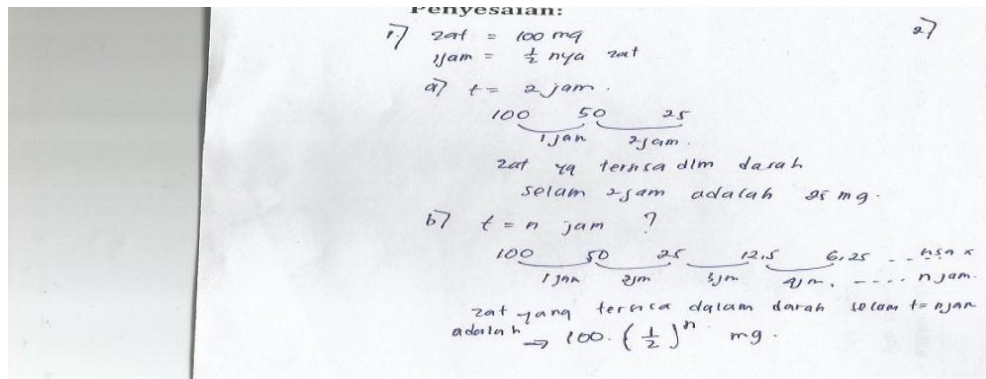 Penyesaian:
1.) zat = 100 mg
1jam = 1/2 nya zat
a) t = 2 jam.
100 50 25
1 jam 2 jam.
zat yg tersisa dlm darah
selam 2 jam adalah 25 mg.
b) t = n jam ?
100 50 25 12,5 6,25 ..
1 jam 2jm 3jm 4jm. ---- n jam.
zat yang tersisa dalam darah selam t = n jam
adalah → 100. (1/2)^n mg.
2)